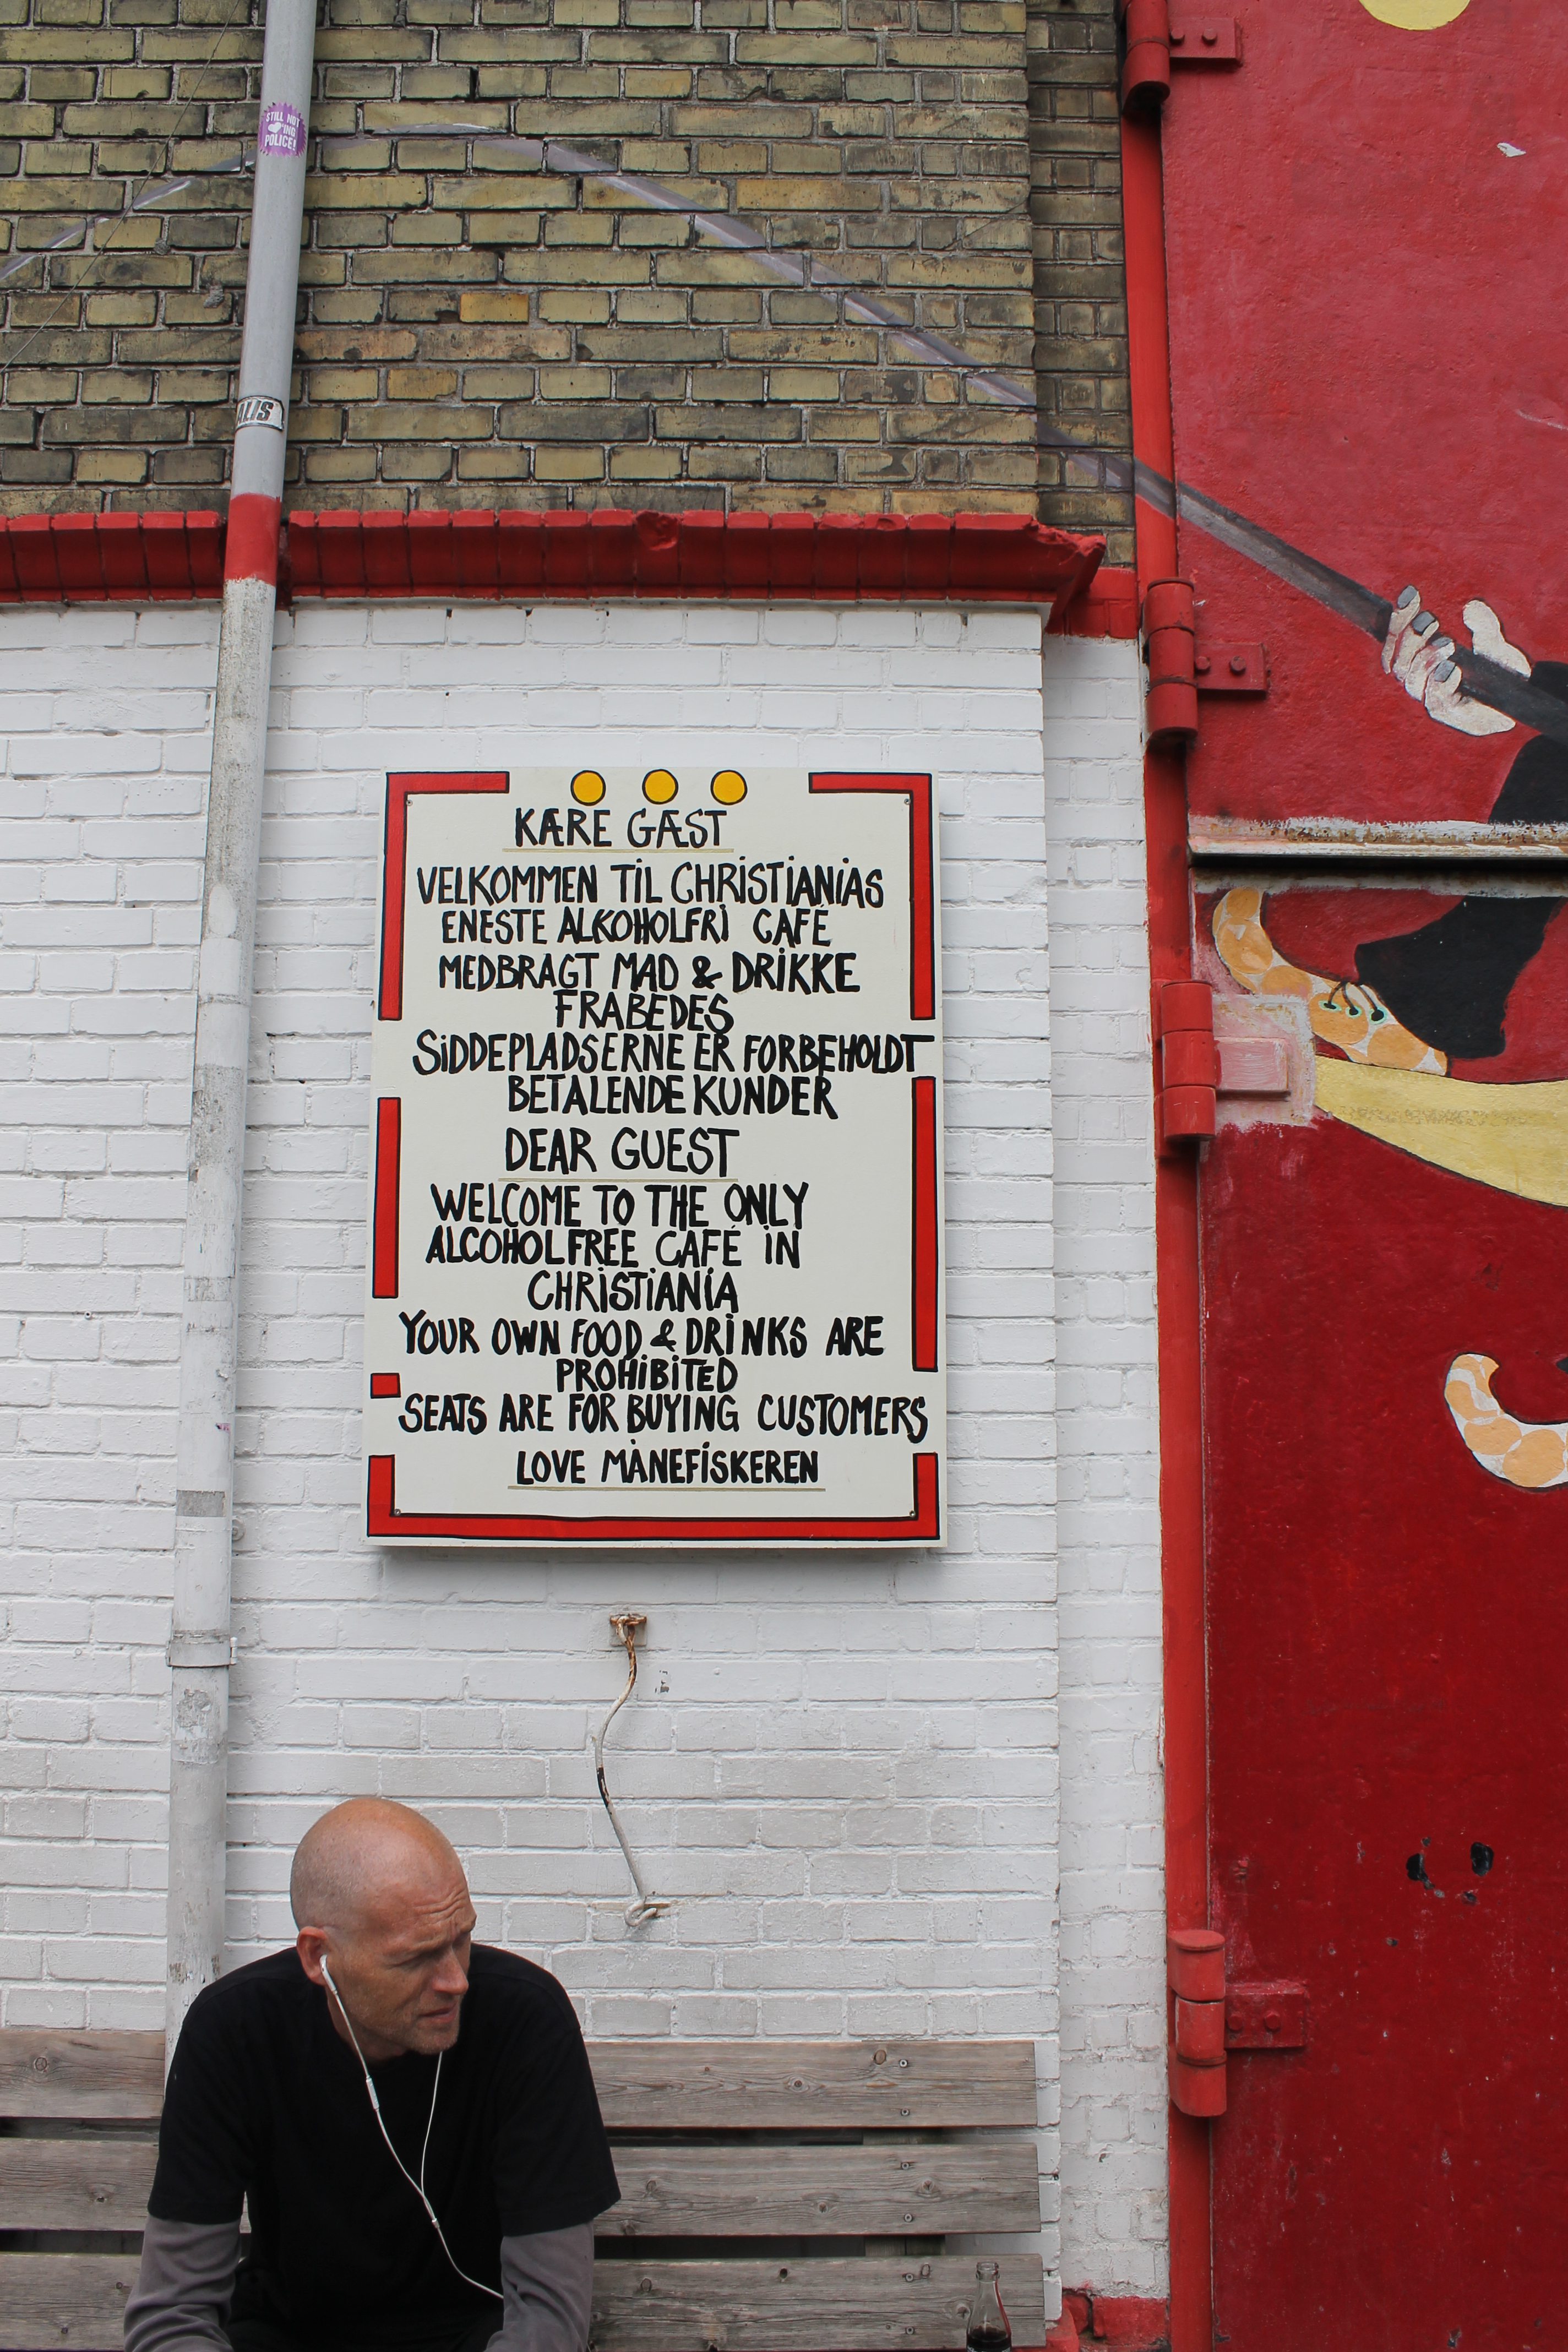 STILL NOT
'ING
POLICE!
KÆRE GÆST
VELKOMMEN TIL CHRISTIANIAS
ENESTE ALKOHOLFRI CAFÉ
MEDBRAGT MAD & DRIKKE
FRABEDES
SIDDEPLADSERNE ER FORBEHOLDT
BETALENDE KUNDER
DEAR GUEST
WELCOME TO THE ONLY
ALCOHOLFREE CAFÉ IN
CHRISTIANIA
YOUR OWN FOOD & DRINKS ARE
PROHIBITED
SEATS ARE FOR BUYING CUSTOMERS
LOVE MÅNEFISKEREN